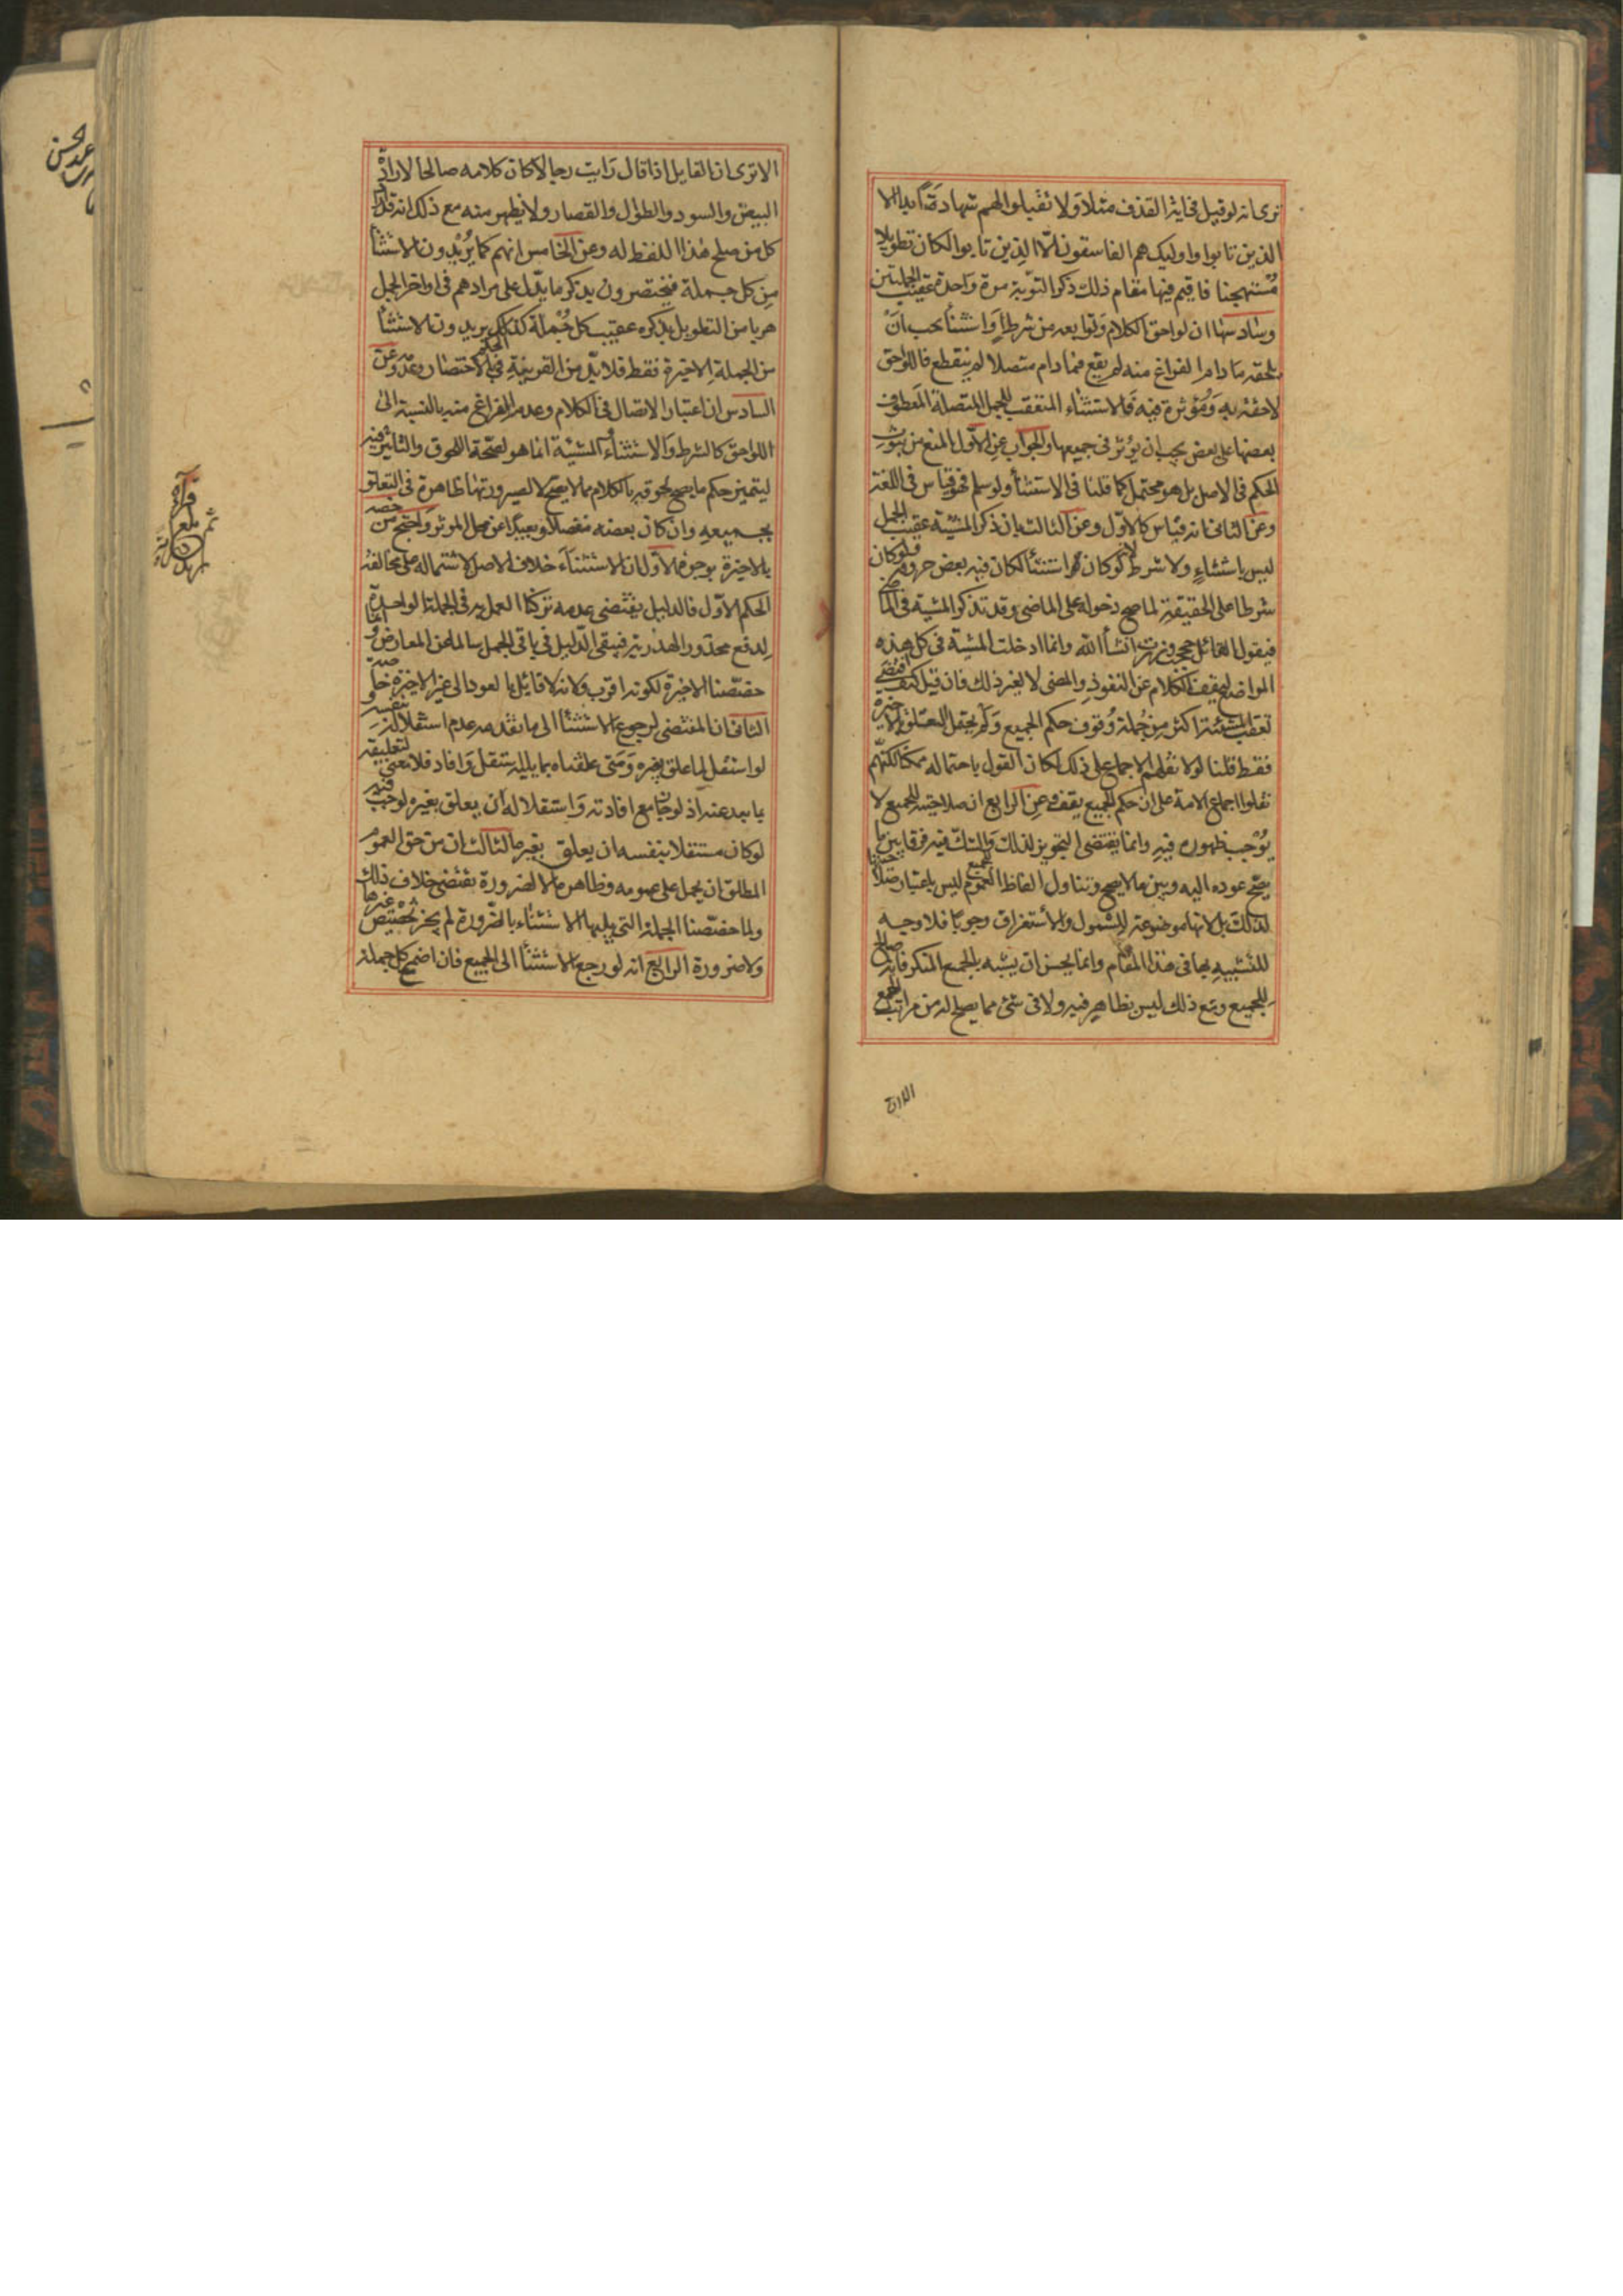 ترى انه لو قيل فى اية القذف مثلا وَلا تقبلوا لهم شهادة ابدا الا
الذين تابوا واوليك هم الفاسقون الّا الذين تابوا لكان تطويلا
مُستهجنا فاقيم فيها مقام ذلك ذكر التوبة مرة وَاحدة عقيب الجملتين
وسادسها ان لواحق الكلام وَتوابعه من شرط اَوَ استثنأ يجب انَ
يلحقه مادام الفراغ منه لم يقع فما دام متصلا لم ينقطع فاللواحق
لاحقة به وَمُؤثرة فيه فَالاستثناء المتعقب للجمل المتصلة المعطوف
بعضها على بعض يجب ان يؤثر فى جميعها والجوَاب عنِ الاوّل المنع من ثبوت
الحكم فى الاصل بل هو محتمل كما قلنا فى الاستثنأ ولو سلم فهو قياس فى اللغة
وعَن الثانى انه قياس كالاوّل وعن الثالث بان ذكر المشيّة عقيب الجمل
ليس باستثناءٍ ولا شرط لانه لو كان استثنأ لكان فيه بعض حروفه ولو كان
شرطا على الحقيقة لما صح دخوله على الماضى وقد تذكر المشيّة فى الماضى
فيقول القائل حججت وزرت انشأ اللّه وانما ادخلت المشيّة فى كل هذه
المواضع ليقف الكلام عن النفوذِ والمضى لا لغير ذلك فان قيل كيف اقتضى
تعقب المشيّة اكثر من جُملة وُقوف حكم الجميع وَلَم يحتمل التعلق بالاخيرة
فقط قلنا لولا نقلهم الاجماع على ذلك لكان القول باحتماله ممكنا لكنّهم
نقلوا اجماع الامة على ان حكم الجميع يقف وعنِ الرابع ان صلاحيته للجميع لا
يُوْجب ظهوره فيهِ وانما يقتضى التجويز لذلك وَالشك فيه فرقا بين ما
يصحّ عوده اليه وبين ما لا يصح وتناول الفاظ العموم للجميع ليس باعتبار صلاحيتها
لذلك بل لانها موضوعة للشمول والاستغراق وجوبًا فلا وجه
للتشبيهِ بها فى هذا المقام وانما يحسن ان يشبه بالجمع المنكر فانه صالح
للجميع ومَع ذلك ليس بظاهرٍ فيه ولا فى شئ مما يصلح له من مراتب الجمع
الا ترى
الا ترى ان القايل اذا قال رَايت رجالا كان كلامه صالحا لارادة
البيض والسود والطوال والقصار ولا يظهر منه مع ذلك انه قد اراد
كل من صلح هٰذا اللفظ له وعن الخامس انهم كما يُريْدون الاستثنأ
مِن كل جملة فيختصرون بذكر ما يدّل على مرادهم فى اواخر الجمل
هربا من التطويل بذكره عقيب كل جُملة كذلك يريدون الاستثنأ
من الجملة الاخيرة فقط فلا بدّ من القرينةِ فى الحكم بالاختصار وعدمه وَعن
السادس ان اعتبار الاتصال فى الكلام وعدم الفراغ منه بالنسبة الى
اللواحق كالشرط وَالاستثنأء وَالمشيّة انما هو لصحّة اللحوق والتاثير فيه
ليتميز حكم ما يصح لحوقه بالكلام مما لا يصحّ لا لصيرورتها ظاهرة فى التعلق
بجميعهِ وان كان بعضه منفصلًا وبعيدًا عن محل الموثر وَاحتج من خصه
بالاخيرة بوجوه الاول ان الاستثناءَ خلاف الاصل لاشتماله على مخالفة
الحكم الاوّل فالدليل يقتضى عدمه تركنا العمل به فى الجملة الواحدة
لدفع محذور الهذرية فيبقى الدّليل فى باقى الجمل سالما عن المعارض وَانما
خصّصنا الاخيرة لكونها اقرب وَلانه لا قائل بالعود الى غير الاخيرة خاصة
الثانى ان المقتضى لرجوع الاستثنأ الى ما تقدمه عدم استقلاله بنفسه وَ
لو استقل لما علق بغيره وَمَتى علقناه بما يليه استقل وَافاد فلا معنى لتعليقه
بما بعد عنه اذ لو جاز مع افادته وَاستقلاله ان يعلق بغيره لوجب فيه
لو كان مستقلا بنفسه ان يعلق بغيره الثالث ان من حق العموم
المطلق ان يحمل على عمومه وظاهره الا لضرورة تقتضى خلاف ذلك
ولما خصّصنا الجملة التى يليها الاستثنأء بالضّرورة لم يجز تخصيص غيرها
ولا ضرورة الرّابع انه لو رجع الاستثنأ الى الجميع فان اضمر مع كل جملة